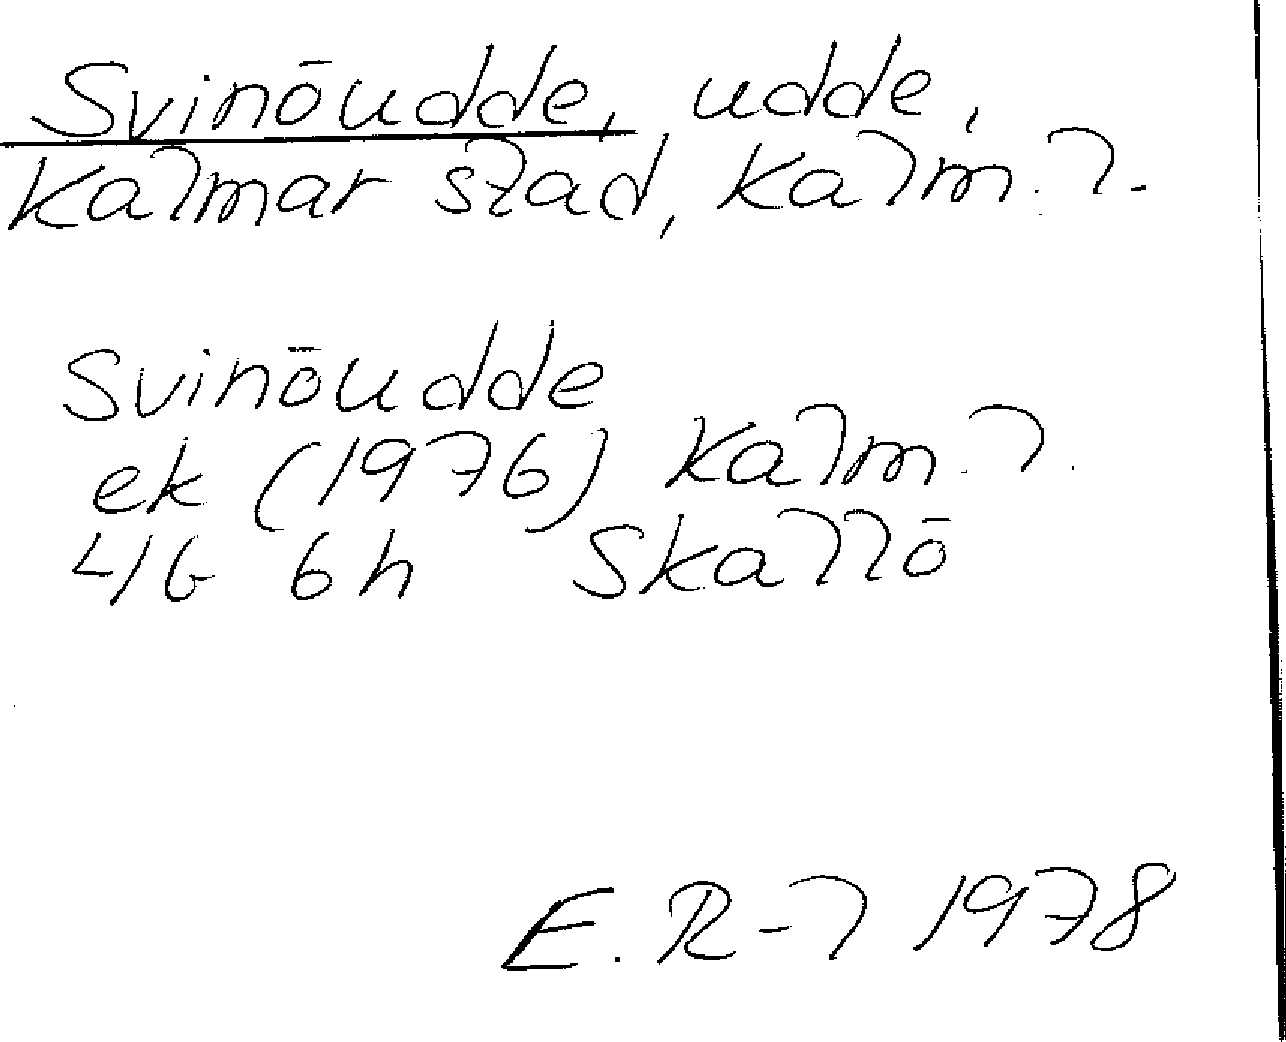 Svinöudde, udde,
Kalmar stad, Kalm. l.
Svinöudde
ek (1976) Kalm. l.
4 G 6 h Skallö
E. R-l 1978